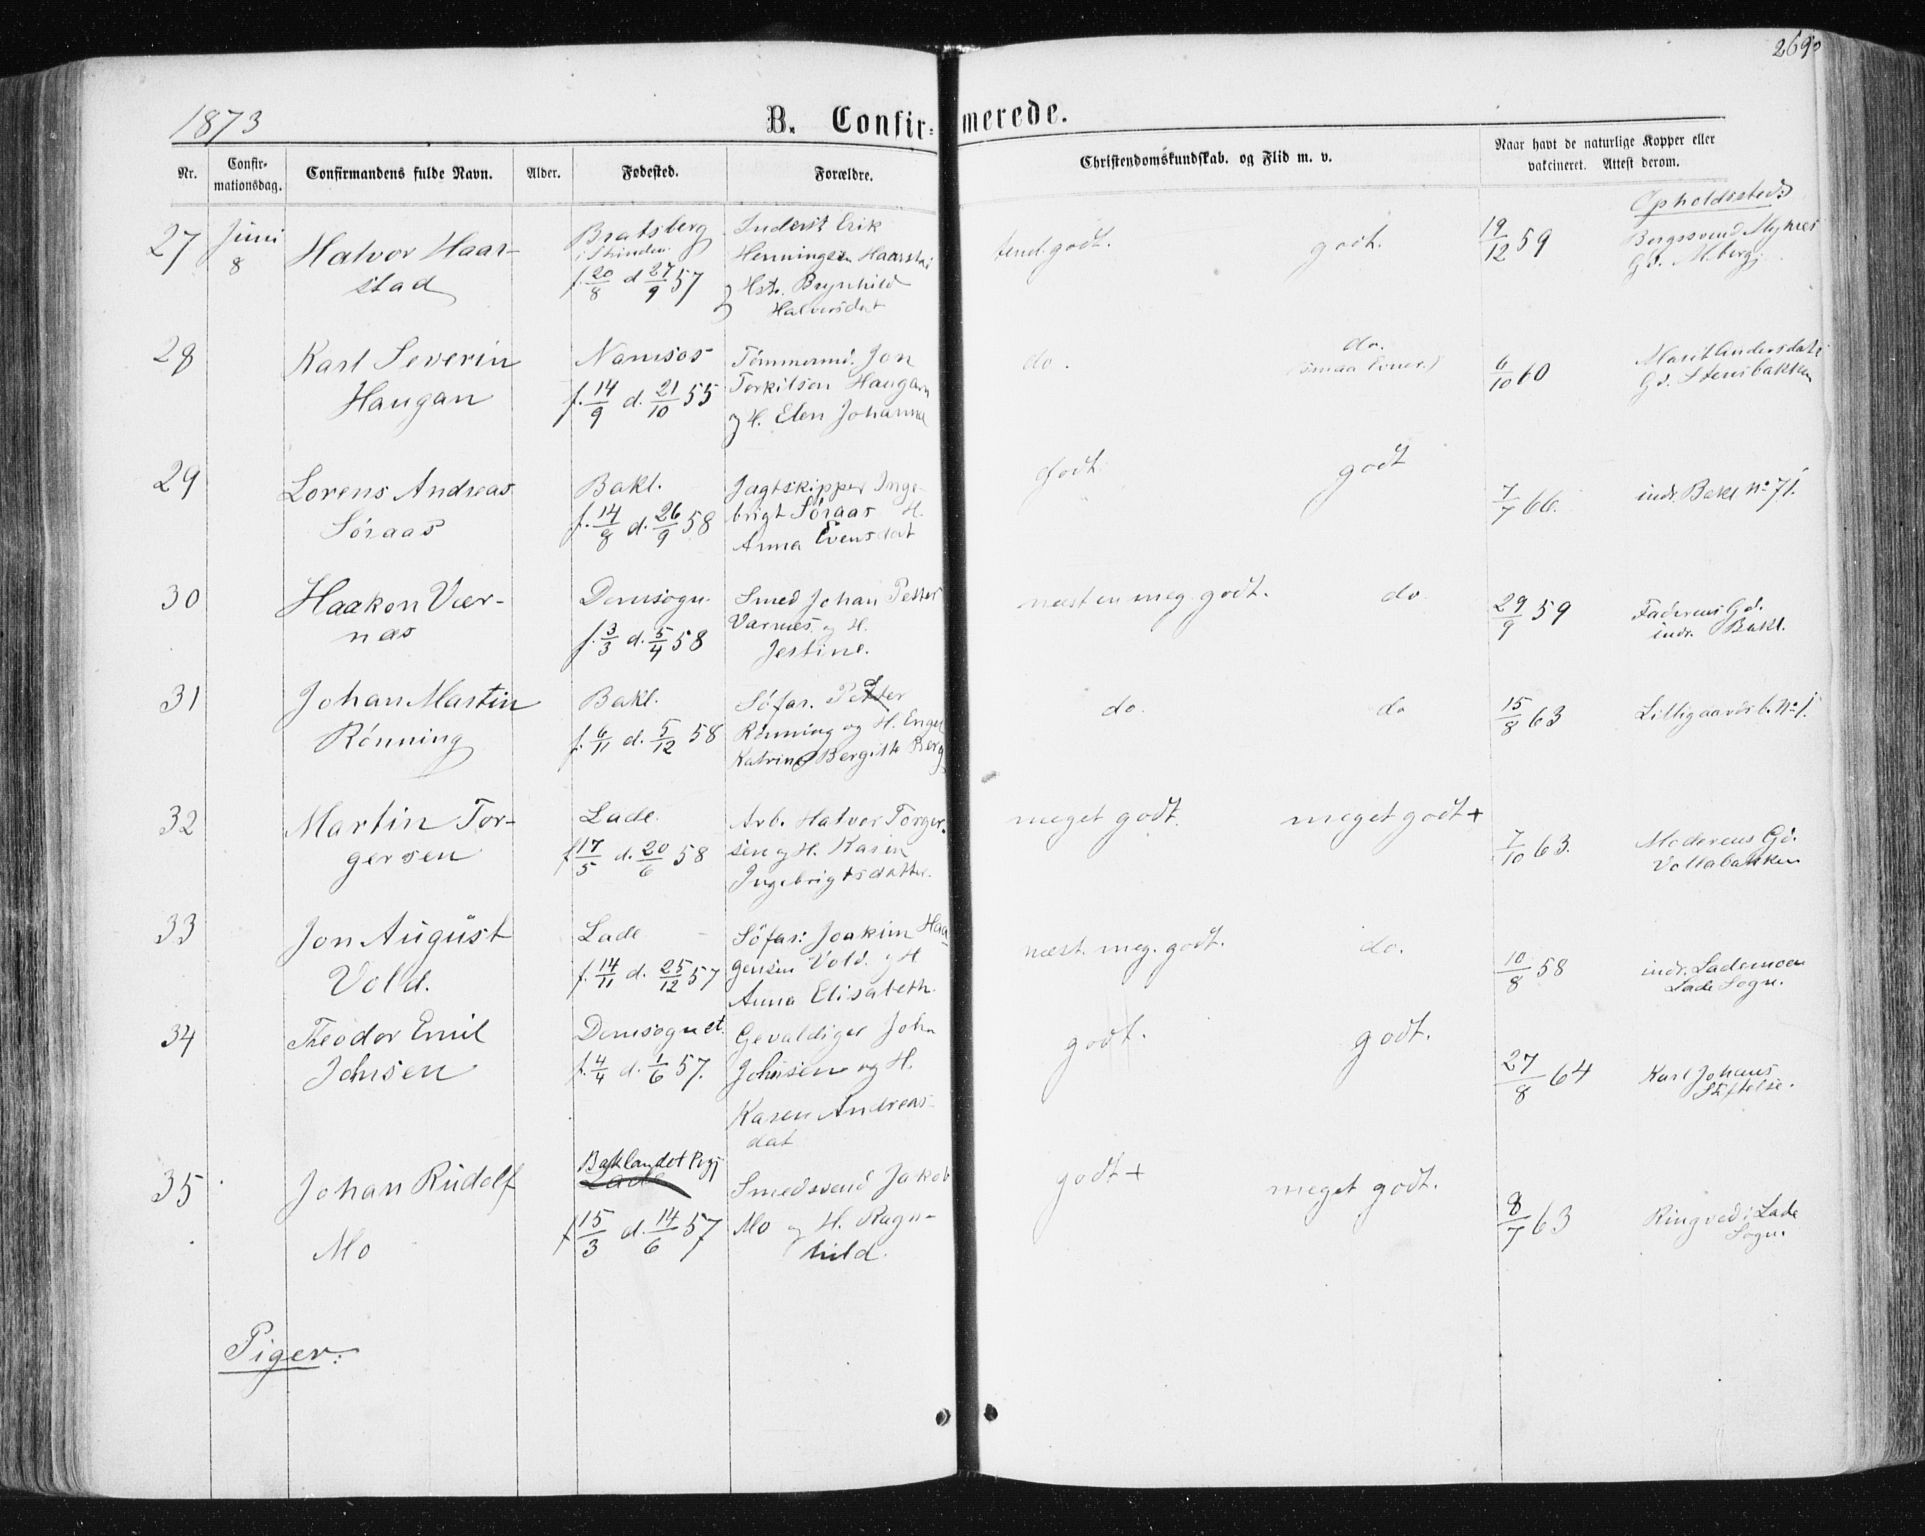 269
1873
B. Confirmerede.
Nr.
Confirmationsdag.
Confirmandens fulde Navn.
Alder.
Fødested.
Forældre.
Christendomskundskab, og Flid m. v.
Naar havt de naturlige Kopper eller
vakcineret. Attest derom.
Opholdssted:
27 Juni 8
Halvor Haar-
stad
Bratsberg
i Strinden
f. 20/8 d 27/9 57
Inderst Erik
Henningsen Haarstad
og Hst. Brynhild
Halvorsdat
tend. godt.
godt.
19/12 59
Bergssvend
Gd. M.berg.
28
Karl Severin
Haugan
Namsos
f. 14/9 d. 21/10 55
Tømmermd. Jon
Torkilsen Haugan
og H. Elen Johanna
do.
do.
(smaa Evner.)
6/10 60
Marit Andersdats
Gd. Stensbakken
29
Lorens Andreas
Søraas
Bakl.
f. 14/8 d. 26/9 58
Jagtskipper Inge-
brigt Søraas H.
Anna Evensdat
Godt.
godt
7/7 66.
indr. Bakl No 71.
30
Haakon Vær-
næs
Domsogn.
f. 3/3 d. 5/4 58
Smed Johan Petter
Varnæs og H.
Jestine.
næsten meg. godt.
do.
29/9 59
Faderens Gd.
indr. Bakl.
31
Johan Martin
Rønning
Bakl.
f. 6/11 d. 5/12 58
Søfar. Petter
Rønning og H. Engel
Katrine Bergitte Berg
do.
do
15/8 63
Lilligaardsb. No 1.
32
Martin Tor-
gersen
Lade.
f 17/5 d. 20/6 58
Arb. Halvor Torger-
sen og H. Karin
Ingebrigtsdatter.
meget godt.
meget godt +
7/10 63.
Moderens Gd.
Vollabakken
33
Jon August
Vold.
Lade
f. 14/11 d. 25/12 57
Søfar: Joakim Haa-
gensen Vold. og H
Anna Elisabeth.
næst. meg. godt.
do.
10/8 58
indr. Lademoen
Lade Sogn.
34
Theodor Emil
Johnsen
Domsognet
f. 4/4 d. 1/6 57.
Gevaldiger John
Johnsen og H.
Karen Andreas-
dat
godt.
godt.
27/8 64
Karl Johans
Stiftelse.
35
Johan Rudolf
Mo
Baklandet
Lade
f 15/3 d. 14/6 57
Smedsvend Jakob
Mo og H. Ragn-
hild.
godt +
meget godt.
8/7 63
Ringved i Lade
Sogn.
Piger: